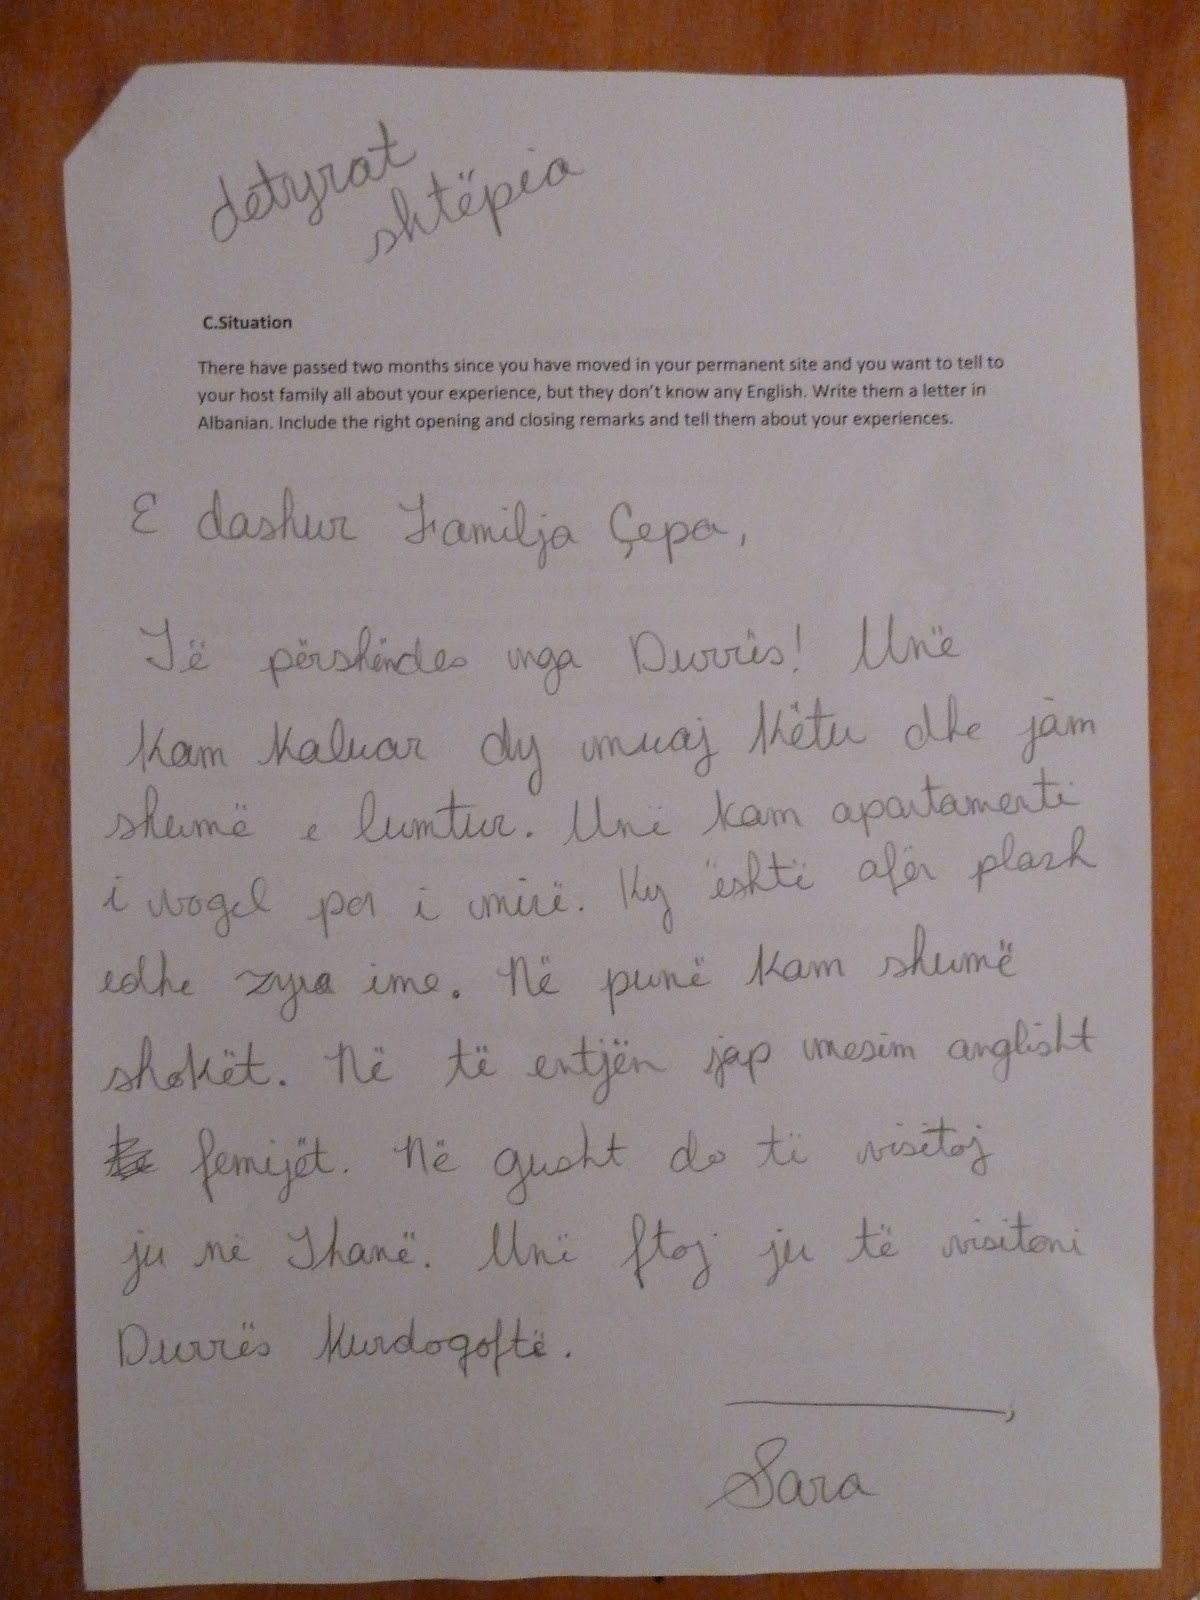 detyrat
shtëpia
C.Situation
There have passed two months since you have moved in your permanent site and you want to tell to
your host family all about your experience, but they don't know any English. Write them a letter in
Albanian. Include the right opening and closing remarks and tell them about your experiences.
E dashur Familja Çepa,
Të përshëndes nga Durrës! Unë
kam kaluar dy muaj këtu dhe jam
shumë e lumtur. Unë kam apartamenti
i vogel por i mirë. Ky është afër plazh
edhe zyra ime. Në punë kam shumë
shokët. Në të entjën jap mesim anglisht
femijët. Në gusht do të visitoj
ju në Thanë. Unë ftoj ju të visitoni
Durrës kurdogoftë.
Sara